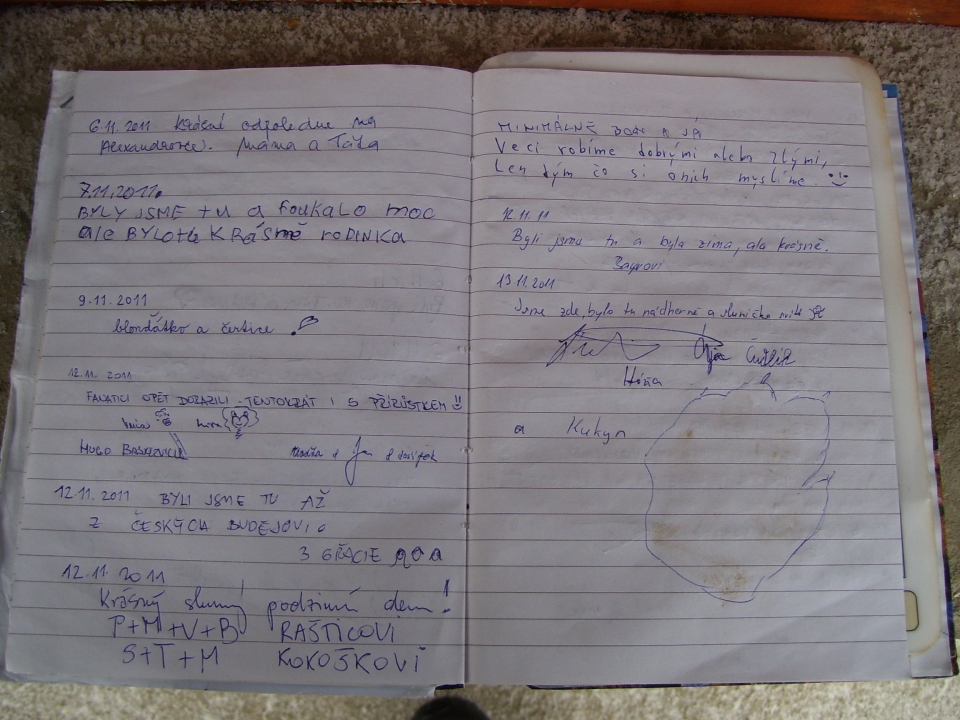 6.11.2011 Krásné odpoledne na
Alexandrovce. Máma a Táta
7.11.2011.
BYLY JSME tu a foukalo moc
ale BYLO to KRÁSNĚ RODINKA
9.11.2011
blonďátko a čertice
12.11. 2011
FANATICI OPĚT DORAZILI - TENTOKRÁT I S PŘÍRŮSTKEM!!
HUGO
12.11.2011 BYLI JSME TU AŽ
Z ČESKÝCH BUDEJOVIC
3 GRÁCIE
12.11. 2011
Krásný slunný podzimní den!
P+M+V+B RAŠTICOVI
S+T+M KOKOŠKOVI
MINIMÁLNĚ BOBO A JÁ
Veci robíme dobrými alebo zlými,
Len tým čo si o nich myslíme
12.11.11
Byli jsme tu a byla zima, ale krásně.
13.11.2011
Jsme zde, bylo tu nádherně a sluníčko svítí
Hóňa
a Kukyn